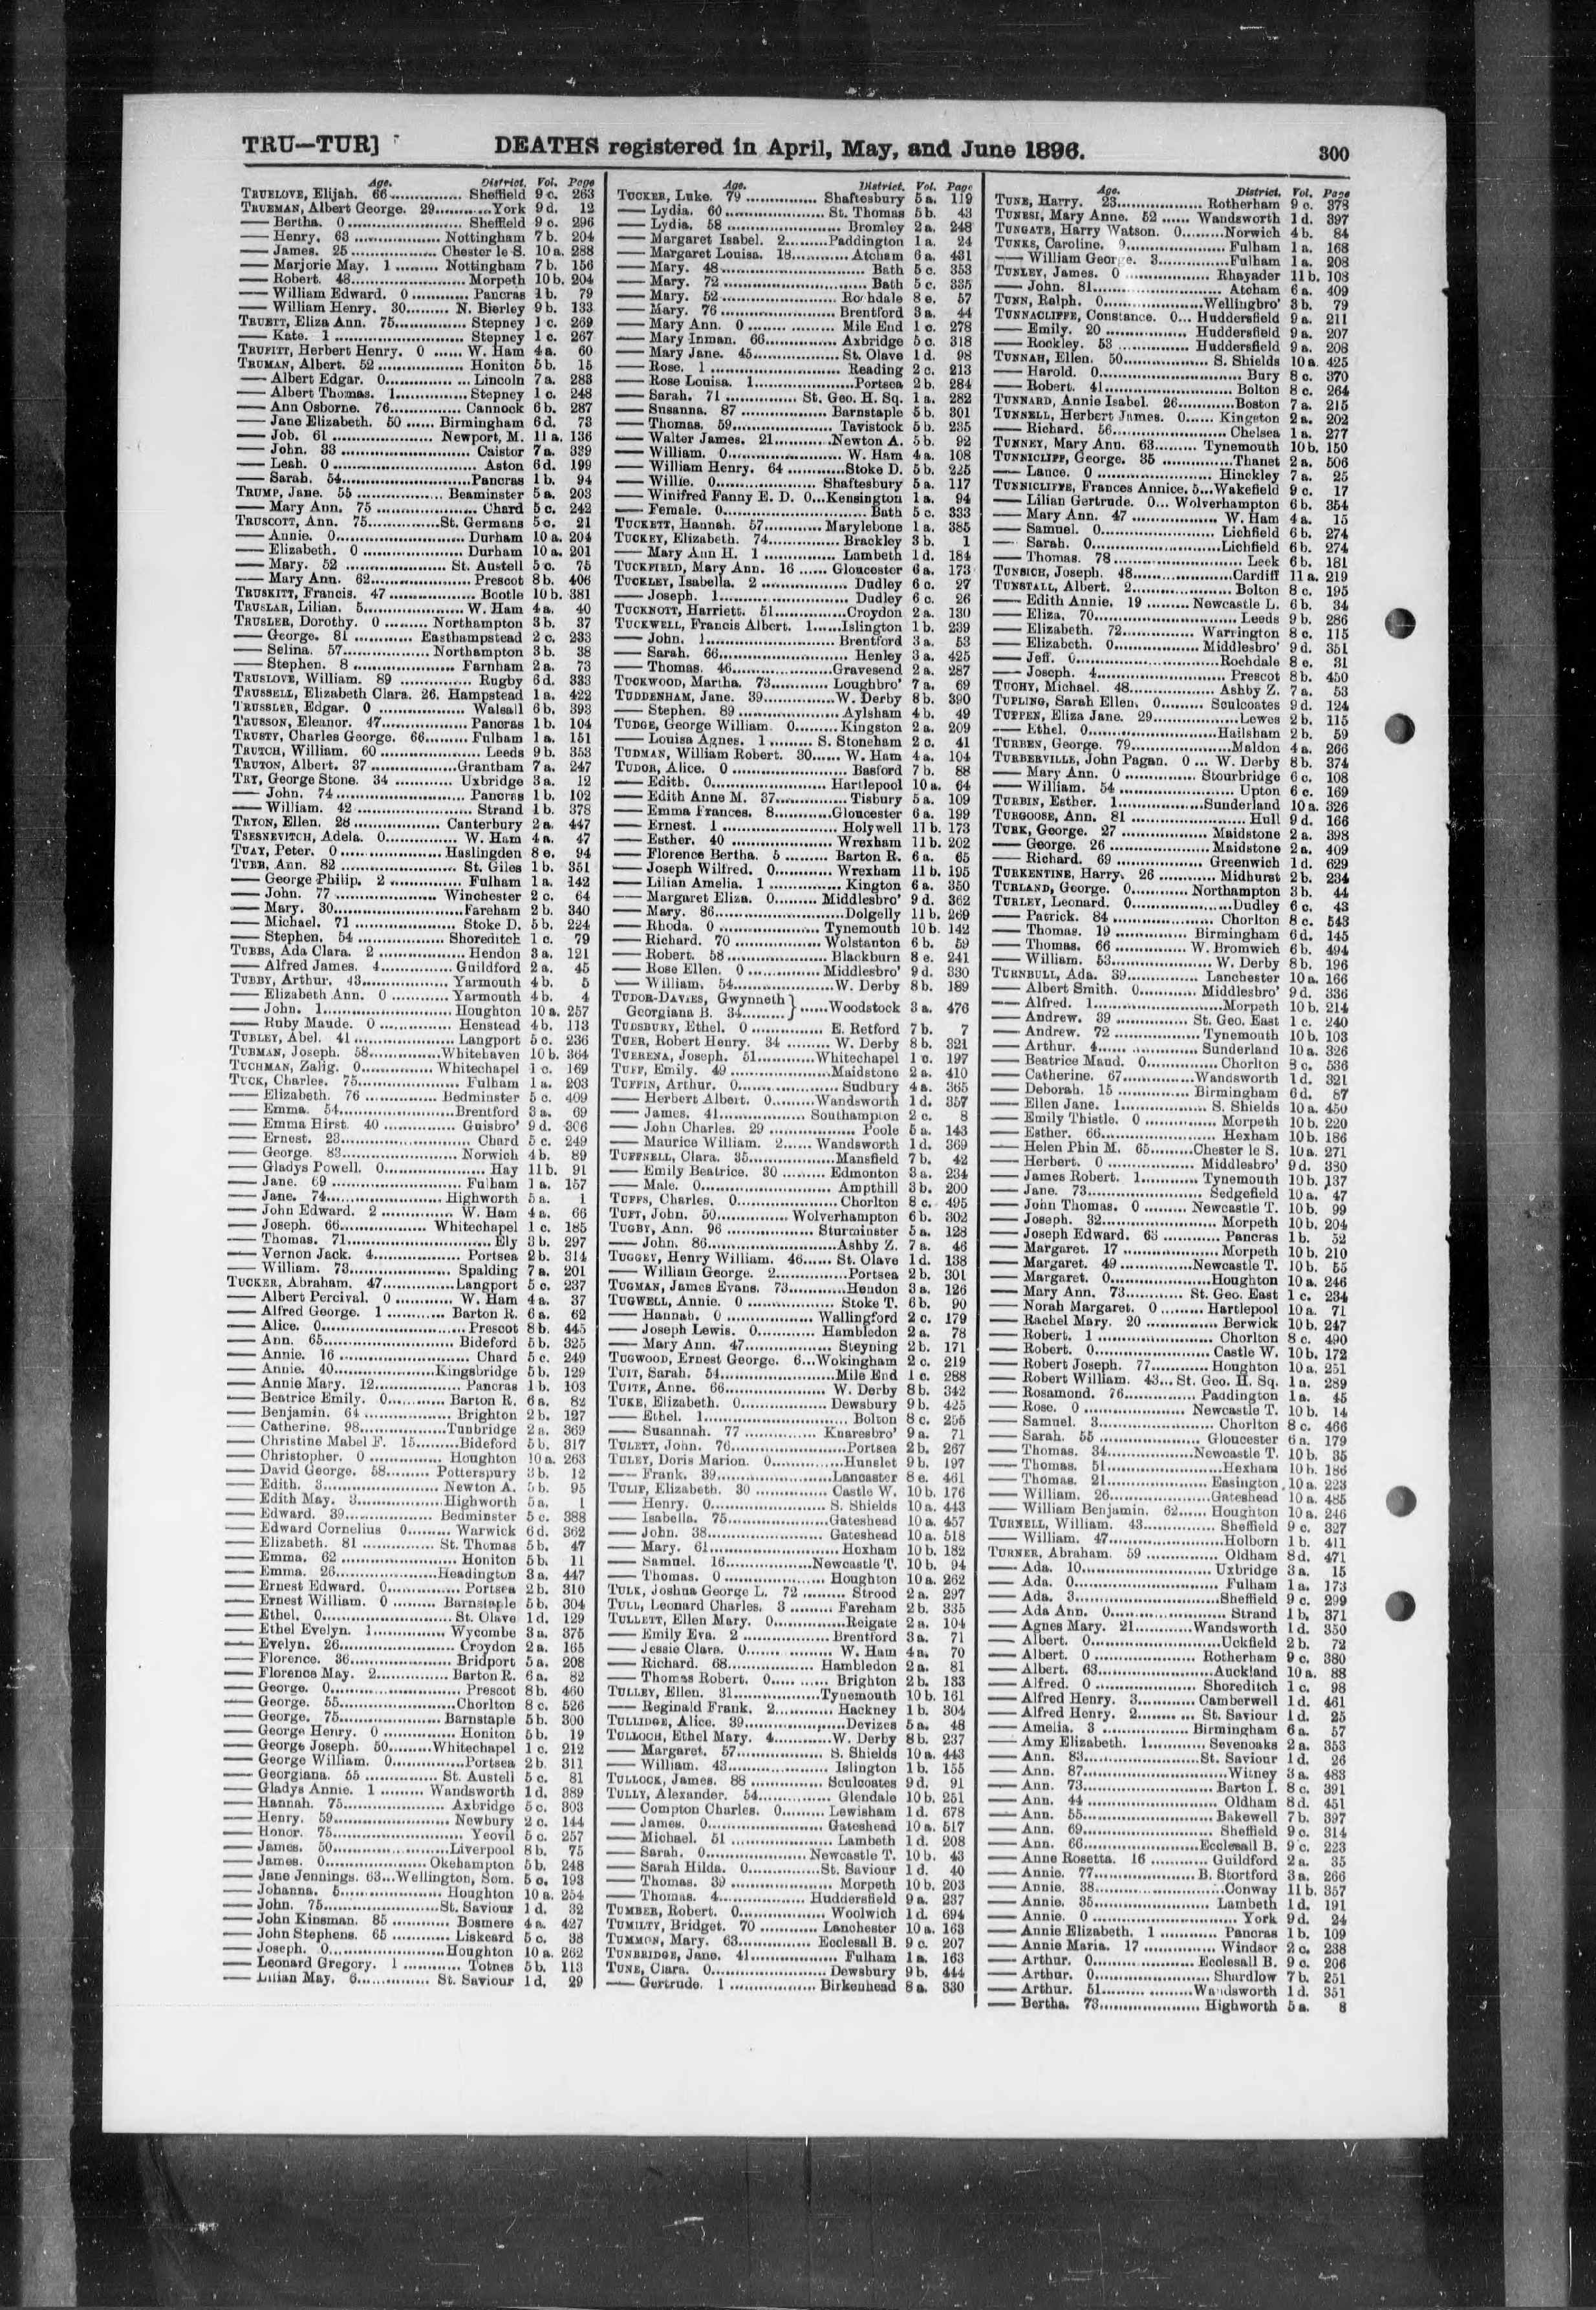 TRU—TUR]
DEATHS registered in April, May, and June 1896.
300
Age. District. Vol. Page
TRUELOVE, Elijah. 66 Sheffield 9 c. 263
TRUEMAN, Albert George. 29 York 9 d. 12
— Bertha. 0 Sheffield 9 c. 296
— Henry. 63 Nottingham 7 b. 204
— James. 25 Chester le S. 10 a. 288
— Marjorie May. 1 Nottingham 7 b. 156
— Robert. 48 Morpeth 10 b. 204
— William Edward. 0 Pancras 1 b. 79
— William Henry. 30 N. Bierley 9 b. 133
TRUETT, Eliza Ann. 75 Stepney 1 c. 269
— Kate. 1 Stepney 1 c. 267
TRUFITT, Herbert Henry. 0 W. Ham 4 a. 60
TRUMAN, Albert. 52 Honiton 5 b. 15
— Albert Edgar. 0 Lincoln 7 a. 283
— Albert Thomas. 1 Stepney 1 c. 248
— Ann Osborne. 76 Cannock 6 b. 287
— Jane Elizabeth. 50 Birmingham 6 d. 73
— Job. 61 Newport, M. 11 a. 136
— John. 33 Caistor 7 a. 339
— Leah. 0 Aston 6 d. 199
— Sarah. 54 Pancras 1 b. 94
TRUMP, Jane. 55 Beaminster 5 a. 203
— Mary Ann. 75 Chard 5 c. 242
TRUSCOTT, Ann. 75 St. Germans 5 c. 21
— Annie. 0 Durham 10 a. 204
— Elizabeth. 0 Durham 10 a. 201
— Mary. 52 St. Austell 5 c. 75
— Mary Ann. 62 Prescot 8 b. 406
TRUSKITT, Francis. 47 Bootle 10 b. 381
TRUSLAR, Lilian. 5 W. Ham 4 a. 40
TRUSLER, Dorothy. 0 Northampton 3 b. 37
— George. 81 Easthampstead 2 c. 233
— Selina. 57 Northampton 3 b. 38
— Stephen. 8 Farnham 2 a. 73
TRUSLOVE, William. 89 Rugby 6 d. 333
TRUSSELL, Elizabeth Clara. 26. Hampstead 1 a. 422
TRUSSLER, Edgar. 0 Walsall 6 b. 393
TRUSSON, Eleanor. 47 Pancras 1 b. 104
TRUSTY, Charles George. 66 Fulham 1 a. 151
TRUTCH, William. 60 Leeds 9 b. 353
TRUTON, Albert. 37 Grantham 7 a. 247
TRY, George Stone. 34 Uxbridge 3 a. 12
— John. 74 Pancras 1 b. 102
— William. 42 Strand 1 b. 378
TRYON, Ellen. 28 Canterbury 2 a. 447
TSESNEVITCH, Adela. 0 W. Ham 4 a. 47
TUAY, Peter. 0 Haslingden 8 e. 94
TUBB, Ann. 82 St. Giles 1 b. 351
— George Philip. 2 Fulham 1 a. 142
— John. 77 Winchester 2 c. 64
— Mary. 30 Fareham 2 b. 340
— Michael. 71 Stoke D. 5 b. 224
— Stephen. 54 Shoreditch 1 c. 79
TUBBS, Ada Clara. 2 Hendon 3 a. 121
— Alfred James. 4 Guildford 2 a. 45
TUBBY, Arthur. 43 Yarmouth 4 b. 5
— Elizabeth Ann. 0 Yarmouth 4 b. 4
— John. 1 Houghton 10 a. 257
— Ruby Maude. 0 Henstead 4 b. 113
TUBLEY, Abel. 41 Langport 5 c. 236
TUBMAN, Joseph. 58 Whitehaven 10 b. 364
TUCHMAN, Zalig. 0 Whitechapel 1 c. 169
TUCK, Charles. 75 Fulham 1 a. 203
— Elizabeth. 76 Bedminster 5 c. 409
— Emma. 54 Brentford 3 a. 69
— Emma Hirst. 40 Guisbro' 9 d. 306
— Ernest. 23 Chard 5 c. 249
— George. 83 Norwich 4 b. 89
— Gladys Powell. 0 Hay 11 b. 91
— Jane. 69 Fulham 1 a. 157
— Jane. 74 Highworth 5 a. 1
— John Edward. 2 W. Ham 4 a. 66
— Joseph. 66 Whitechapel 1 c. 185
— Thomas. 71 Ely 3 b. 297
— Vernon Jack. 4 Portsea 2 b. 314
— William. 73 Spalding 7 a. 201
TUCKER, Abraham. 47 Langport 5 c. 237
— Albert Percival. 0 W. Ham 4 a. 37
— Alfred George. 1 Barton R. 6 a. 62
— Alice. 0 Prescot 8 b. 445
— Ann. 65 Bideford 5 b. 325
— Annie. 16 Chard 5 c. 249
— Annie. 40 Kingsbridge 5 b. 129
— Annie Mary. 12 Pancras 1 b. 103
— Beatrice Emily. 0 Barton R. 6 a. 82
— Benjamin. 64 Brighton 2 b. 127
— Catherine. 98 Tunbridge 2 a. 369
— Christine Mabel F. 15 Bideford 5 b. 317
— Christopher. 0 Houghton 10 a. 263
— David George. 58 Potterspury 3 b. 12
— Edith. 3 Newton A. 5 b. 95
— Edith May. 3 Highworth 5 a. 1
— Edward. 39 Bedminster 5 c. 388
— Edward Cornelius 0 Warwick 6 d. 362
— Elizabeth. 81 St. Thomas 5 b. 47
— Emma. 62 Honiton 5 b. 11
— Emma. 26 Headington 3 a. 447
— Ernest Edward. 0 Portsea 2 b. 310
— Ernest William. 0 Barnstaple 5 b. 304
— Ethel. 0 St. Olave 1 d. 129
— Ethel Evelyn. 1 Wycombe 3 a. 375
— Evelyn. 26 Croydon 2 a. 165
— Florence. 36 Bridport 5 a. 208
— Florence May. 2 Barton R. 6 a. 82
— George. 0 Prescot 8 b. 460
— George. 55 Chorlton 8 c. 526
— George. 75 Barnstaple 5 b. 300
— George Henry. 0 Honiton 5 b. 19
— George Joseph. 50 Whitechapel 1 c. 212
— George William. 0 Portsea 2 b. 311
— Georgiana. 55 St. Austell 5 c. 81
— Gladys Annie. 1 Wandsworth 1 d. 389
— Hannah. 75 Axbridge 5 c. 303
— Henry. 59 Newbury 2 c. 144
— Honor. 75 Yeovil 5 c. 257
— James. 50 Liverpool 8 b. 75
— James. 0 Okehampton 5 b. 248
— Jane Jennings. 63 Wellington, Som. 5 c. 193
— Johanna. 5 Houghton 10 a. 254
— John. 75 St. Saviour 1 d. 32
— John Kinsman. 85 Bosmere 4 a. 427
— John Stephens. 65 Liskeard 5 c. 38
— Joseph. 0 Houghton 10 a. 262
— Leonard Gregory. 1 Totnes 5 b. 113
— Lilian May. 6 St. Saviour 1 d. 29
Age. District. Vol. Page
TUCKER, Luke. 79 Shaftesbury 5 a. 119
— Lydia. 60 St. Thomas 5 b. 43
— Lydia. 58 Bromley 2 a. 248
— Margaret Isabel. 2 Paddington 1 a. 24
— Margaret Louisa. 18 Atcham 6 a. 431
— Mary. 48 Bath 5 c. 353
— Mary. 72 Bath 5 c. 335
— Mary. 52 Rochdale 8 e. 57
— Mary. 76 Brentford 3 a. 44
— Mary Ann. 0 Mile End 1 c. 278
— Mary Inman. 66 Axbridge 5 c. 318
— Mary Jane. 45 St. Olave 1 d. 98
— Rose. 1 Reading 2 c. 213
— Rose Louisa. 1 Portsea 2 b. 284
— Sarah. 71 St. Geo. H. Sq. 1 a. 282
— Susanna. 87 Barnstaple 5 b. 301
— Thomas. 59 Tavistock 5 b. 235
— Walter James. 21 Newton A. 5 b. 92
— William. 0 W. Ham 4 a. 108
— William Henry. 64 Stoke D. 5 b. 225
— Willie. 0 Shaftesbury 5 a. 117
— Winifred Fanny E. D. 0 Kensington 1 a. 94
— Female. 0 Bath 5 c. 333
TUCKETT, Hannah. 57 Marylebone 1 a. 385
TUCKEY, Elizabeth. 74 Brackley 3 b. 1
— Mary Ann H. 1 Lambeth 1 d. 184
TUCKFIELD, Mary Ann. 16 Gloucester 6 a. 173
TUCKLEY, Isabella. 2 Dudley 6 c. 27
— Joseph. 1 Dudley 6 c. 26
TUCKNOTT, Harriett. 51 Croydon 2 a. 130
TUCKWELL, Francis Albert. 1 Islington 1 b. 239
— John. 1 Brentford 3 a. 53
— Sarah. 66 Henley 3 a. 425
— Thomas. 46 Gravesend 2 a. 287
TUCKWOOD, Martha. 73 Loughbro' 7 a. 69
TUDDENHAM, Jane. 39 W. Derby 8 b. 390
— Stephen. 89 Aylsham 4 b. 49
TUDGE, George William. 0 Kingston 2 a. 209
— Louisa Agnes. 1 S. Stoneham 2 c. 41
TUDMAN, William Robert. 30 W. Ham 4 a. 104
TUDOR, Alice. 0 Basford 7 b. 88
— Edith. 0 Hartlepool 10 a. 64
— Edith Anne M. 37 Tisbury 5 a. 109
— Emma Frances. 8 Gloucester 6 a. 199
— Ernest. 1 Holywell 11 b. 173
— Esther. 40 Wrexham 11 b. 202
— Florence Bertha. 5 Barton R. 6 a. 65
— Joseph Wilfred. 0 Wrexham 11 b. 195
— Lilian Amelia. 1 Kington 6 a. 350
— Margaret Eliza. 0 Middlesbro' 9 d. 362
— Mary. 86 Dolgelly 11 b. 269
— Rhoda. 0 Tynemouth 10 b. 142
— Richard. 70 Wolstanton 6 b. 59
— Robert. 58 Blackburn 8 e. 241
— Rose Ellen. 0 Middlesbro' 9 d. 330
— William. 54 W. Derby 8 b. 189
TUDOR-DAVIES, Gwynneth
Georgiana B. 34 } Woodstock 3 a. 476
TUDSBURY, Ethel. 0 E. Retford 7 b. 7
TUER, Robert Henry. 34 W. Derby 8 b. 321
TUERENA, Joseph. 51 Whitechapel 1 c. 197
TUFF, Emily. 49 Maidstone 2 a. 410
TUFFIN, Arthur. 0 Sudbury 4 a. 365
— Herbert Albert. 0 Wandsworth 1 d. 357
— James. 41 Southampton 2 c. 8
— John Charles. 29 Poole 5 a. 143
— Maurice William. 2 Wandsworth 1 d. 369
TUFFNELL, Clara. 35 Mansfield 7 b. 42
— Emily Beatrice. 30 Edmonton 3 a. 234
— Male. 0 Ampthill 3 b. 200
TUFFS, Charles. 0 Chorlton 8 c. 495
TUFT, John. 50 Wolverhampton 6 b. 302
TUGBY, Ann. 96 Sturminster 5 a. 128
— John. 86 Ashby Z. 7 a. 46
TUGGEY, Henry William. 46 St. Olave 1 d. 138
— William George. 2 Portsea 2 b. 301
TUGMAN, James Evans. 73 Hendon 3 a. 126
TUGWELL, Annie. 0 Stoke T. 6 b. 90
— Hannah. 0 Wallingford 2 c. 179
— Joseph Lewis. 0 Hambledon 2 a. 78
— Mary Ann. 47 Steyning 2 b. 171
TUGWOOD, Ernest George. 6 Wokingham 2 c. 219
TUIT, Sarah. 54 Mile End 1 c. 288
TUITE, Anne. 66 W. Derby 8 b. 342
TUKE, Elizabeth. 0 Dewsbury 9 b. 425
— Ethel. 1 Bolton 8 c. 255
— Susannah. 77 Knaresbro' 9 a. 71
TULETT, John. 76 Portsea 2 b. 267
TULEY, Doris Marion. 0 Hunslet 9 b. 197
— Frank. 39 Lancaster 8 e. 461
TULIP, Elizabeth. 30 Castle W. 10 b. 176
— Henry. 0 S. Shields 10 a. 443
— Isabella. 75 Gateshead 10 a. 457
— John. 38 Gateshead 10 a. 518
— Mary. 61 Hexham 10 b. 182
— Samuel. 16 Newcastle T. 10 b. 94
— Thomas. 0 Houghton 10 a. 262
TULK, Joshua George L. 72 Strood 2 a. 297
TULL, Leonard Charles. 3 Fareham 2 b. 335
TULLETT, Ellen Mary. 0 Reigate 2 a. 104
— Emily Eva. 2 Brentford 3 a. 71
— Jessie Clara. 0 W. Ham 4 a. 70
— Richard. 68 Hambledon 2 a. 81
— Thomas Robert. 0 Brighton 2 b. 133
TULLEY, Ellen. 31 Tynemouth 10 b. 161
— Reginald Frank. 2 Hackney 1 b. 304
TULLIDGE, Alice. 39 Devizes 5 a. 48
TULLOCH, Ethel Mary. 4 W. Derby 8 b. 237
— Margaret. 57 S. Shields 10 a. 443
— William. 43 Islington 1 b. 155
TULLOCK, James. 88 Sculcoates 9 d. 91
TULLY, Alexander. 54 Glendale 10 b. 251
— Compton Charles. 0 Lewisham 1 d. 678
— James. 0 Gateshead 10 a. 517
— Michael. 51 Lambeth 1 d. 208
— Sarah. 0 Newcastle T. 10 b. 43
— Sarah Hilda. 0 St. Saviour 1 d. 40
— Thomas. 39 Morpeth 10 b. 203
— Thomas. 4 Huddersfield 9 a. 237
TUMBER, Robert. 0 Woolwich 1 d. 694
TUMILTY, Bridget. 70 Lanchester 10 a. 163
TUMMON, Mary. 63 Ecclesall B. 9 c. 207
TUNBRIDGE, Jane. 41 Fulham 1 a. 163
TUNE, Clara. 0 Dewsbury 9 b. 444
— Gertrude. 1 Birkenhead 8 a. 330
Age. District. Vol. Page
TUNE, Harry. 23 Rotherham 9 c. 378
TUNESI, Mary Anne. 52 Wandsworth 1 d. 397
TUNGATE, Harry Watson. 0 Norwich 4 b. 84
TUNKS, Caroline. 9 Fulham 1 a. 168
— William George. 3 Fulham 1 a. 208
TUNLEY, James. 0 Rhayader 11 b. 103
— John. 81 Atcham 6 a. 409
TUNN, Ralph. 0 Wellingbro' 3 b. 79
TUNNACLIFFE, Constance. 0 Huddersfield 9 a. 211
— Emily. 20 Huddersfield 9 a. 207
— Rockley. 53 Huddersfield 9 a. 208
TUNNAH, Ellen. 50 S. Shields 10 a. 425
— Harold. 0 Bury 8 c. 370
— Robert. 41 Bolton 8 c. 264
TUNNARD, Annie Isabel. 26 Boston 7 a. 215
TUNNELL, Herbert James. 0 Kingston 2 a. 202
— Richard. 56 Chelsea 1 a. 277
TUNNEY, Mary Ann. 63 Tynemouth 10 b. 150
TUNNICLIFF, George. 35 Thanet 2 a. 506
— Lance. 0 Hinckley 7 a. 25
TUNNICLIFFE, Frances Annice. 5 Wakefield 9 c. 17
— Lilian Gertrude. 0 Wolverhampton 6 b. 354
— Mary Ann. 47 W. Ham 4 a. 15
— Samuel. 0 Lichfield 6 b. 274
— Sarah. 0 Lichfield 6 b. 274
— Thomas. 78 Leek 6 b. 181
TUNSICH, Joseph. 48 Cardiff 11 a. 219
TUNSTALL, Albert. 2 Bolton 8 c. 195
— Edith Annie. 19 Newcastle L. 6 b. 34
— Eliza. 70 Leeds 9 b. 286
— Elizabeth. 72 Warrington 8 c. 115
— Elizabeth. 0 Middlesbro' 9 d. 351
— Jeff. 0 Rochdale 8 e. 31
— Joseph. 4 Prescot 8 b. 450
TUOHY, Michael. 48 Ashby Z. 7 a. 53
TUPLING, Sarah Ellen. 0 Sculcoates 9 d. 124
TUPPEN, Eliza Jane. 29 Lewes 2 b. 115
— Ethel. 0 Hailsham 2 b. 59
TURBEN, George. 79 Maldon 4 a. 266
TURBERVILLE, John Pagan. 0 W. Derby 8 b. 374
— Mary Ann. 0 Stourbridge 6 c. 108
— William. 54 Upton 6 c. 169
TURBIN, Esther. 1 Sunderland 10 a. 326
TURGOOSE, Ann. 81 Hull 9 d. 166
TURK, George. 27 Maidstone 2 a. 398
— George. 26 Maidstone 2 a. 409
— Richard. 69 Greenwich 1 d. 629
TURKENTINE, Harry. 26 Midhurst 2 b. 234
TURLAND, George. 0 Northampton 3 b. 44
TURLEY, Leonard. 0 Dudley 6 c. 43
— Patrick. 84 Chorlton 8 c. 543
— Thomas. 19 Birmingham 6 d. 145
— Thomas. 66 W. Bromwich 6 b. 494
— William. 53 W. Derby 8 b. 196
TURNBULL, Ada. 39 Lanchester 10 a. 166
— Albert Smith. 0 Middlesbro' 9 d. 336
— Alfred. 1 Morpeth 10 b. 214
— Andrew. 39 St. Geo. East 1 c. 240
— Andrew. 72 Tynemouth 10 b. 103
— Arthur. 4 Sunderland 10 a. 326
— Beatrice Maud. 0 Chorlton 8 c. 536
— Catherine. 67 Wandsworth 1 d. 321
— Deborah. 15 Birmingham 6 d. 87
— Ellen Jane. 1 S. Shields 10 a. 450
— Emily Thistle. 0 Morpeth 10 b. 220
— Esther. 66 Hexham 10 b. 186
— Helen Phin M. 65 Chester le S. 10 a. 271
— Herbert. 0 Middlesbro' 9 d. 330
— James Robert. 1 Tynemouth 10 b. 137
— Jane. 73 Sedgefield 10 a. 47
— John Thomas. 0 Newcastle T. 10 b. 99
— Joseph. 32 Morpeth 10 b. 204
— Joseph Edward. 63 Pancras 1 b. 52
— Margaret. 17 Morpeth 10 b. 210
— Margaret. 49 Newcastle T. 10 b. 55
— Margaret. 0 Houghton 10 a. 246
— Mary Ann. 73 St. Geo. East 1 c. 234
— Norah Margaret. 0 Hartlepool 10 a. 71
— Rachel Mary. 20 Berwick 10 b. 247
— Robert. 1 Chorlton 8 c. 490
— Robert. 0 Castle W. 10 b. 172
— Robert Joseph. 77 Houghton 10 a. 251
— Robert William. 43 St. Geo. H. Sq. 1 a. 289
— Rosamond. 76 Paddington 1 a. 45
— Rose. 0 Newcastle T. 10 b. 14
— Samuel. 3 Chorlton 8 c. 466
— Sarah. 55 Gloucester 6 a. 179
— Thomas. 34 Newcastle T. 10 b. 35
— Thomas. 51 Hexham 10 b. 186
— Thomas. 21 Easington 10 a. 223
— William. 26 Gateshead 10 a. 485
— William Benjamin. 62 Houghton 10 a. 246
TURNELL, William. 43 Sheffield 9 c. 327
— William. 47 Holborn 1 b. 411
TURNER, Abraham. 59 Oldham 8 d. 471
— Ada. 10 Uxbridge 3 a. 15
— Ada. 0 Fulham 1 a. 173
— Ada. 3 Sheffield 9 c. 299
— Ada Ann. 0 Strand 1 b. 371
— Agnes Mary. 21 Wandsworth 1 d. 350
— Albert. 0 Uckfield 2 b. 72
— Albert. 0 Rotherham 9 c. 380
— Albert. 63 Auckland 10 a. 88
— Alfred. 0 Shoreditch 1 c. 98
— Alfred Henry. 3 Camberwell 1 d. 461
— Alfred Henry. 2 St. Saviour 1 d. 25
— Amelia. 3 Birmingham 6 a. 57
— Amy Elizabeth. 1 Sevenoaks 2 a. 353
— Ann. 83 St. Saviour 1 d. 26
— Ann. 87 Witney 3 a. 483
— Ann. 73 Barton I. 8 c. 391
— Ann. 44 Oldham 8 d. 451
— Ann. 55 Bakewell 7 b. 397
— Ann. 69 Sheffield 9 c. 314
— Ann. 66 Ecclesall B. 9 c. 223
— Anne Rosetta. 16 Guildford 2 a. 35
— Annie. 77 B. Stortford 3 a. 266
— Annie. 38 Conway 11 b. 357
— Annie. 35 Lambeth 1 d. 191
— Annie. 0 York 9 d. 24
— Annie Elizabeth. 1 Pancras 1 b. 109
— Annie Maria. 17 Windsor 2 c. 238
— Arthur. 0 Ecclesall B. 9 c. 206
— Arthur. 0 Shardlow 7 b. 251
— Arthur. 51 Wandsworth 1 d. 351
— Bertha. 73 Highworth 5 a. 8